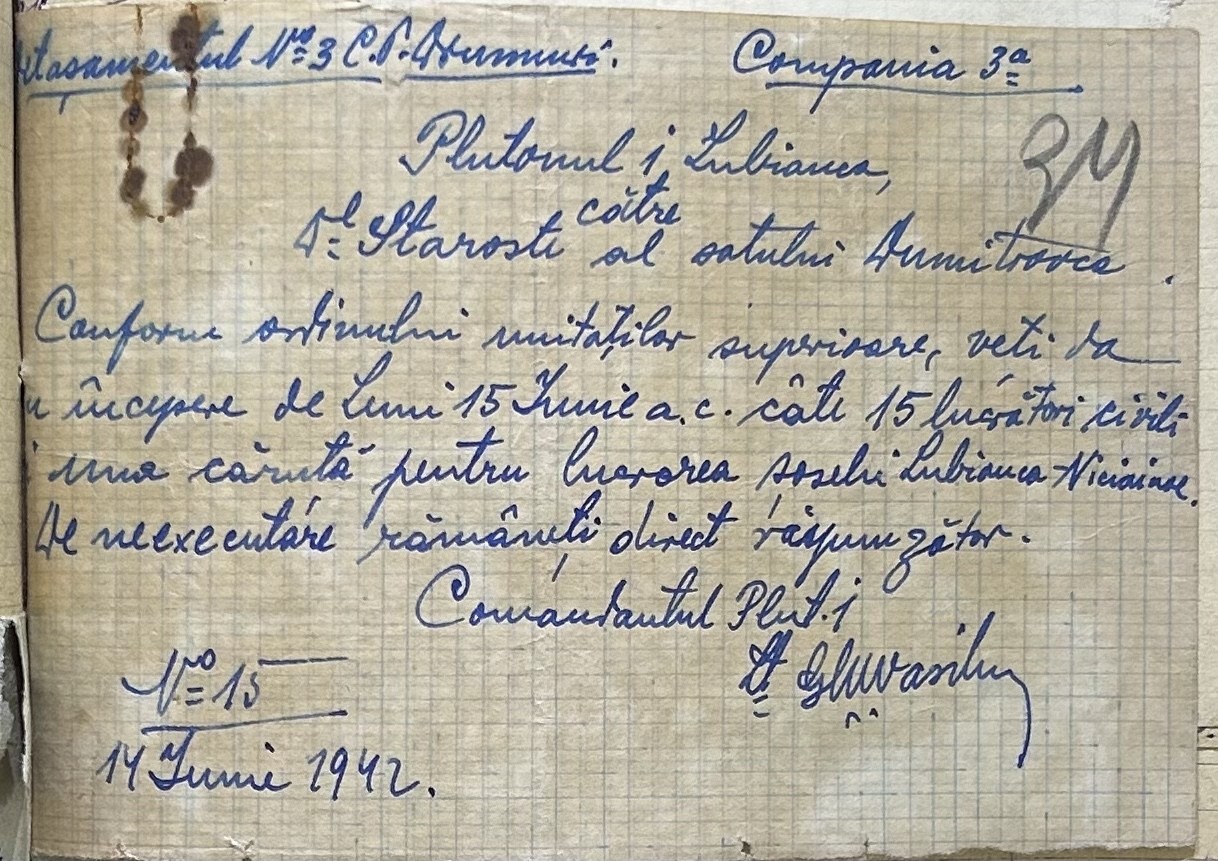 tașamentul Nro 3 C.P. Drumuri. Compania 3a
34
Plutonul 1 Lubianca,
către
Dl Staroste al satului Dumitrovca.
Conform ordinului unităților superioare, veți da
u începere de Luni 15 Iunie a.c. câte 15 lucrători civili
una căruță pentru lucrarea șoselei Lubianca-
De neexecutare rămâneți direct răspunzător.
Comandantul Plut. 1
Nro 15
14 Iunie 1942.